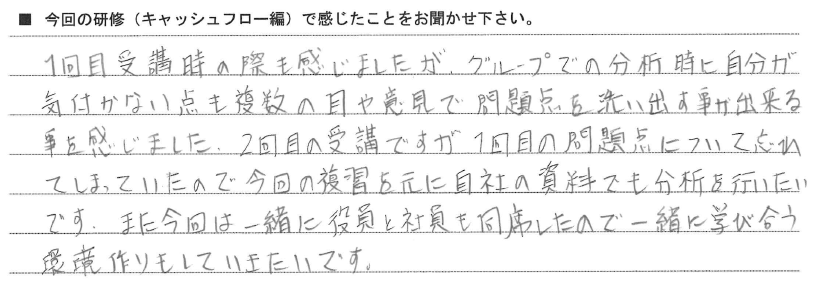 ■ 今回の研修（キャッシュフロー編）で感じたことをお聞かせ下さい。
1回目受講時の際も感じましたが、グループでの分析時に自分が
気付かない点も複数の目や意見で問題点を洗い出す事が出来る
事を感じました。2回目の受講ですが1回目の問題点について忘れ
てしまっていたので今回の復習を元に自社の資料でも分析を行いたい
です。また今回は一緒に役員と社員も同席したので一緒に学び合う
環境作りもしていきたいです。